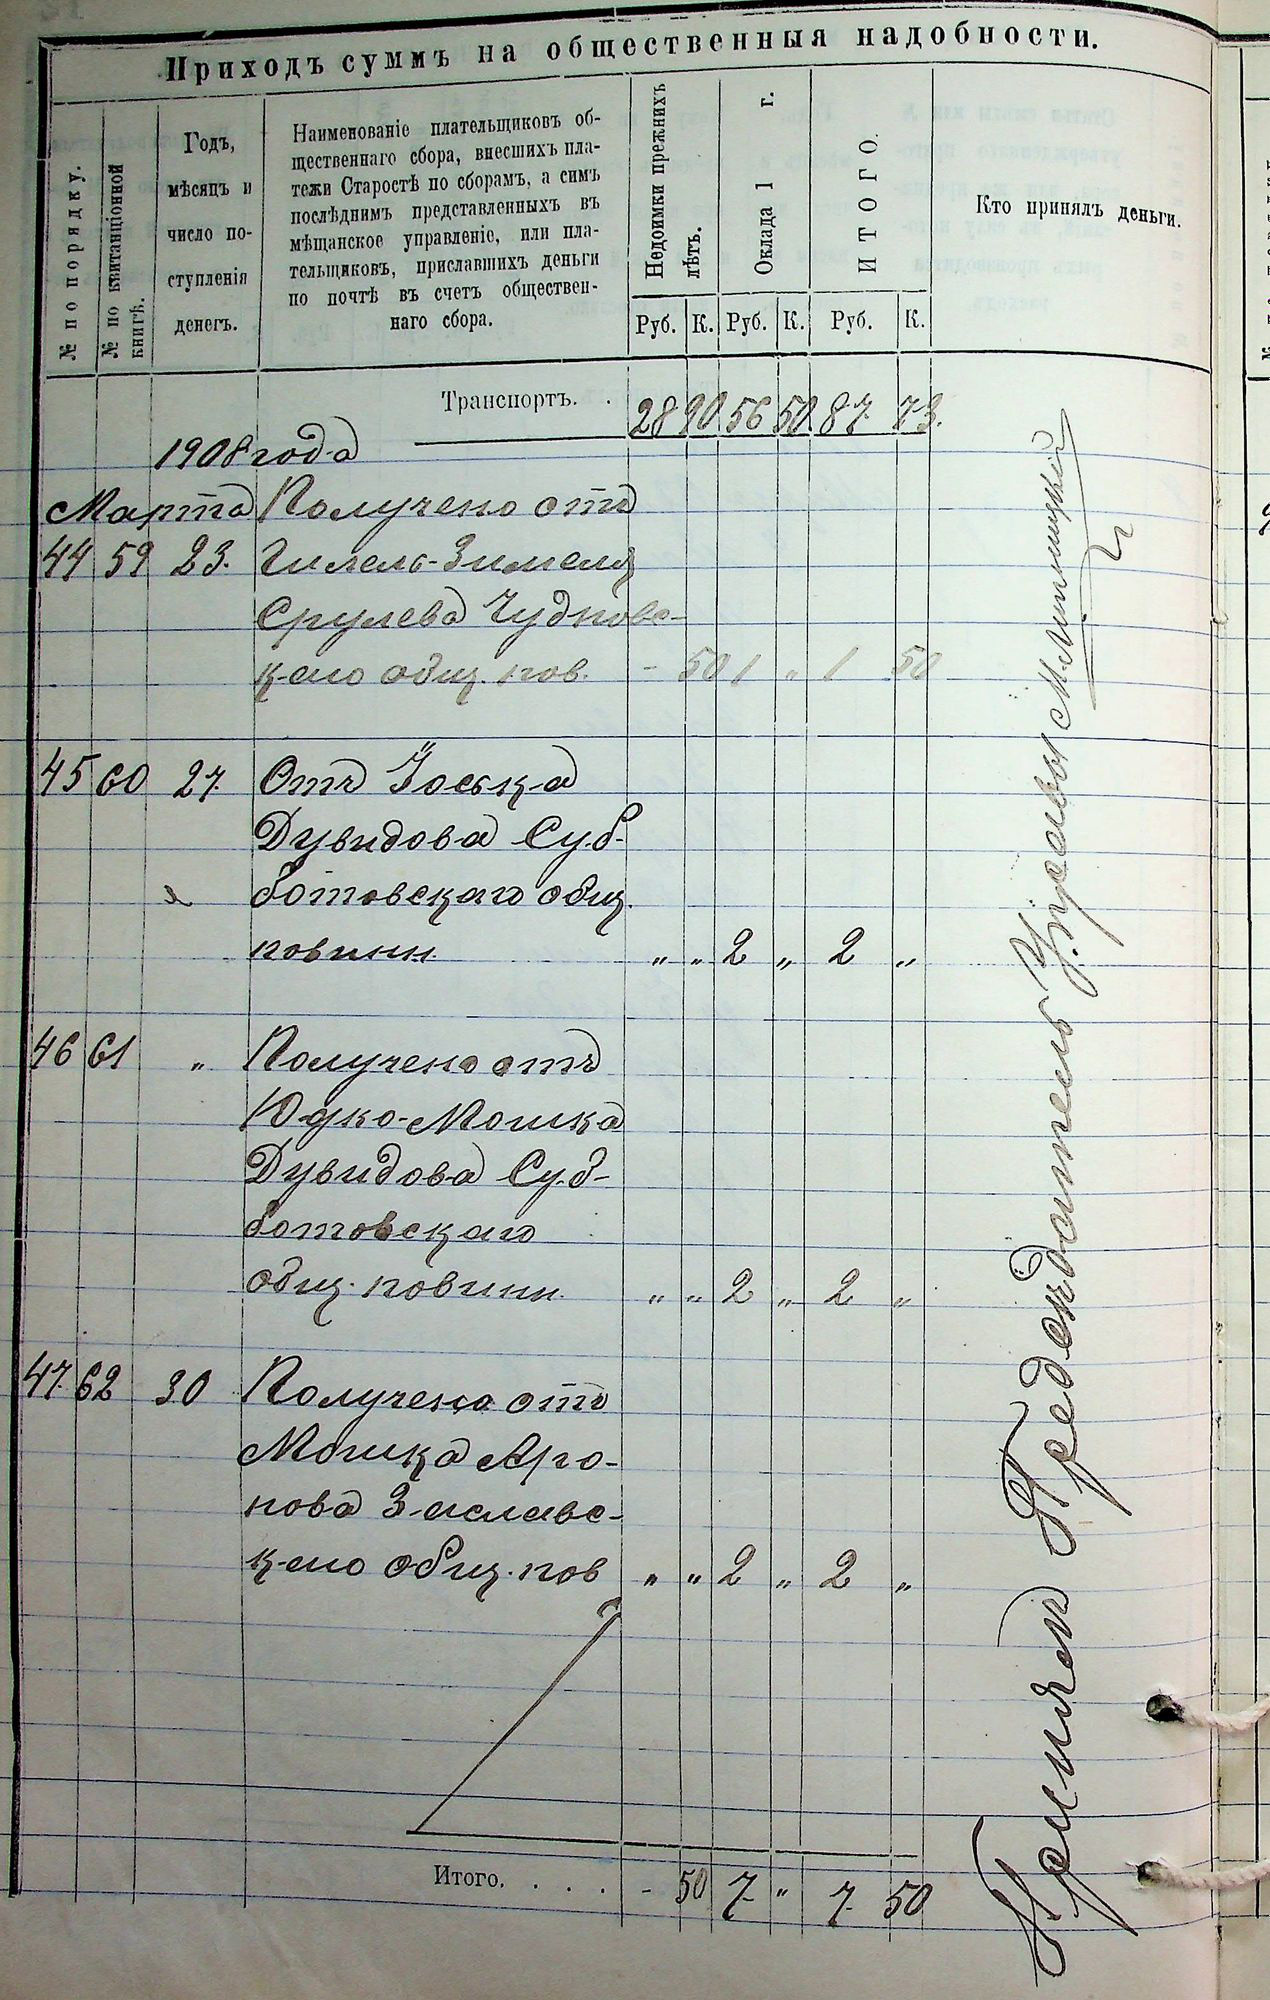 Приходъ суммъ на общественныя надобности.
№ по порядку.
№ по квитанціонной книгѣ.
Годъ,
мѣсяцъ и
число по-
ступленія
денегъ.
Наименованіе плательщиковъ об-
щественнаго сбора, внесшихъ пла-
тежи Старостѣ по сборамъ, а симъ
послѣднимъ представленныхъ въ
мѣщанское управленіе, или пла-
тельщиковъ, приславшихъ деньги
по почтѣ въ счетъ обществен-
наго сбора.
Недоимки прежнихъ
лѣтъ.
Оклада 1 г.
ИТОГО.
Кто принялъ деньги.
Руб. К. Руб. К. Руб. К.
Транспортъ. . 28 90 56 50 87. 73.
1908 года
Марта Получено отъ
44 59 23. Гилель-Зимеля
Срулева Чудновс-
каго общ. пов. - 50 1 " 1 50
45 60 27. Отъ Іоська
Дувидова Суб-
ботовскаго общ.
повинн. " " 2 " 2 "
46 61 " Получено отъ
Юдко-Мошка
Дувидова Суб-
ботовскаго
общ. повинн. " " 2 " 2 "
47. 62 30 Получено отъ
Мошка Аро-
нова Заславс-
каго общ. пов " " 2 " 2 "
Итого. . . . - 50 7. " 7. 50
Принялъ Предсѣдатель Управы